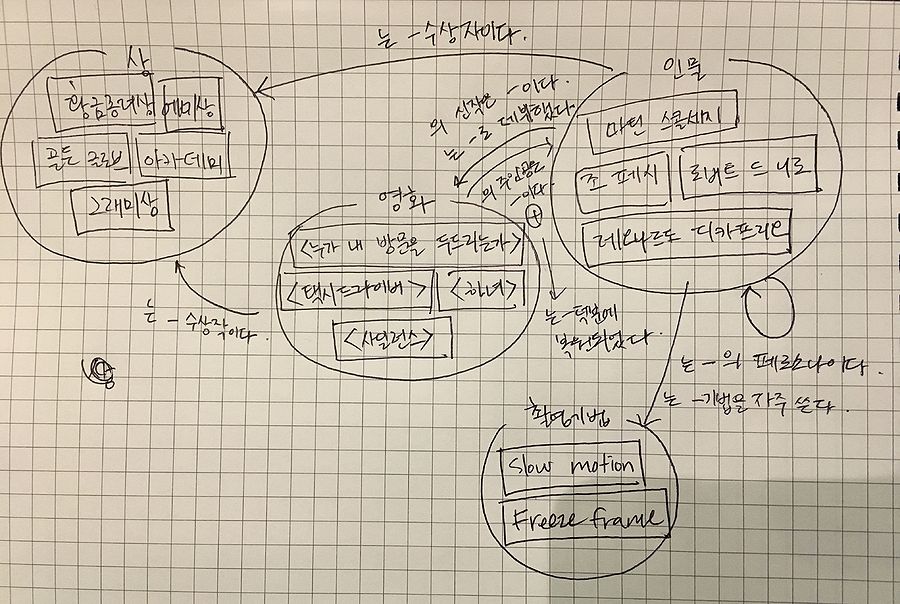 는 -수상자이다.
상
황금종려상
에미상
골든 글로브
아카데미
그래미상
인물
마틴 스콜세지
조 페시
로버트 드 니로
레오나르도 디카프리오
의 신작은 -이다.
는 -로 데뷔했다.
의 주인공은
-이다.
영화
<누가 내 방문을 두드리는가>
<택시드라이버>
<하녀>
<사일런스>
는 - 수상작이다.
는 -덕분에
복원되었다.
는 - 의 페르소나이다.
는 -기법을 자주 쓴다.
촬영기법
Slow motion
Freeze frame